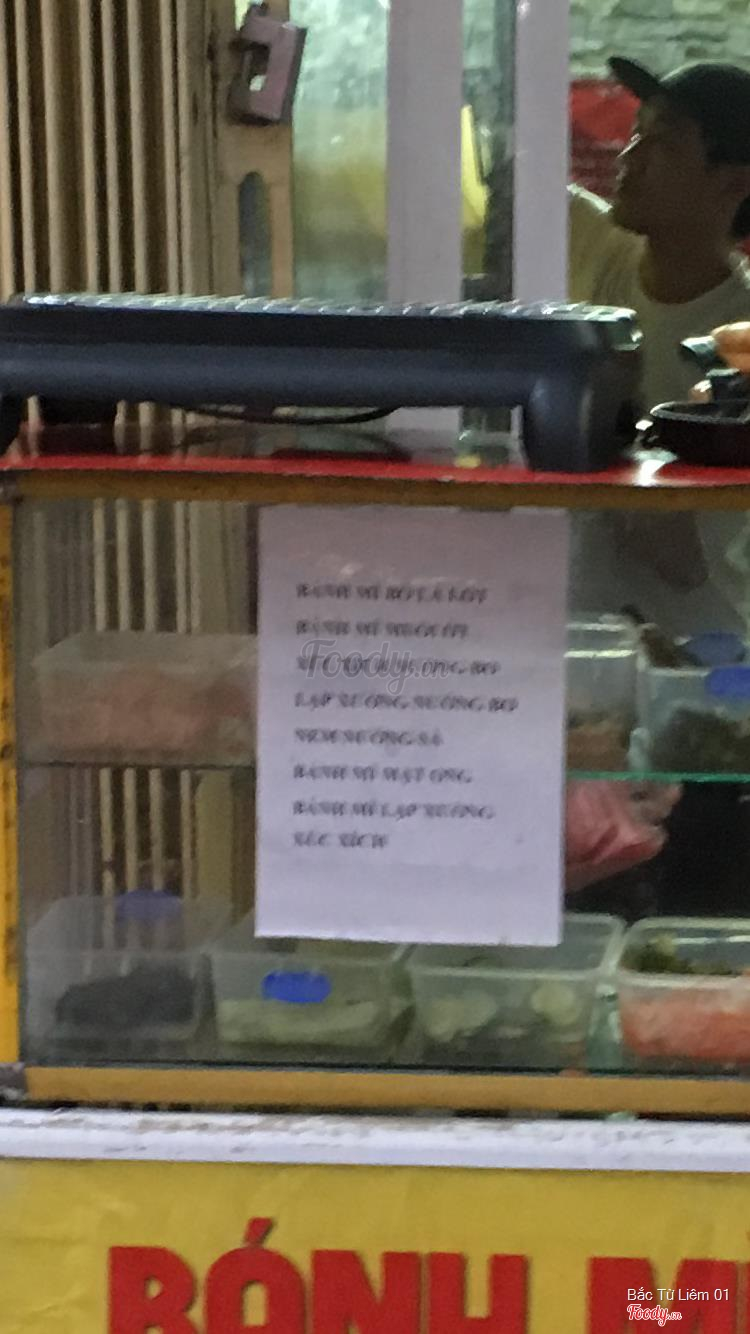 BÁNH MÌ BÒ LÁ LỐT
BÁNH MÌ
NƯỚNG BƠ
LẠP XƯỞNG NƯỚNG BƠ
NEM NƯỚNG XẢ
BÁNH MÌ MẬT ONG
BÁNH MÌ LẠP XƯỞNG
XÚC XÍCH
Foody.vn
BÁNH MÌ
Bắc Từ Liêm 01
Foody.vn